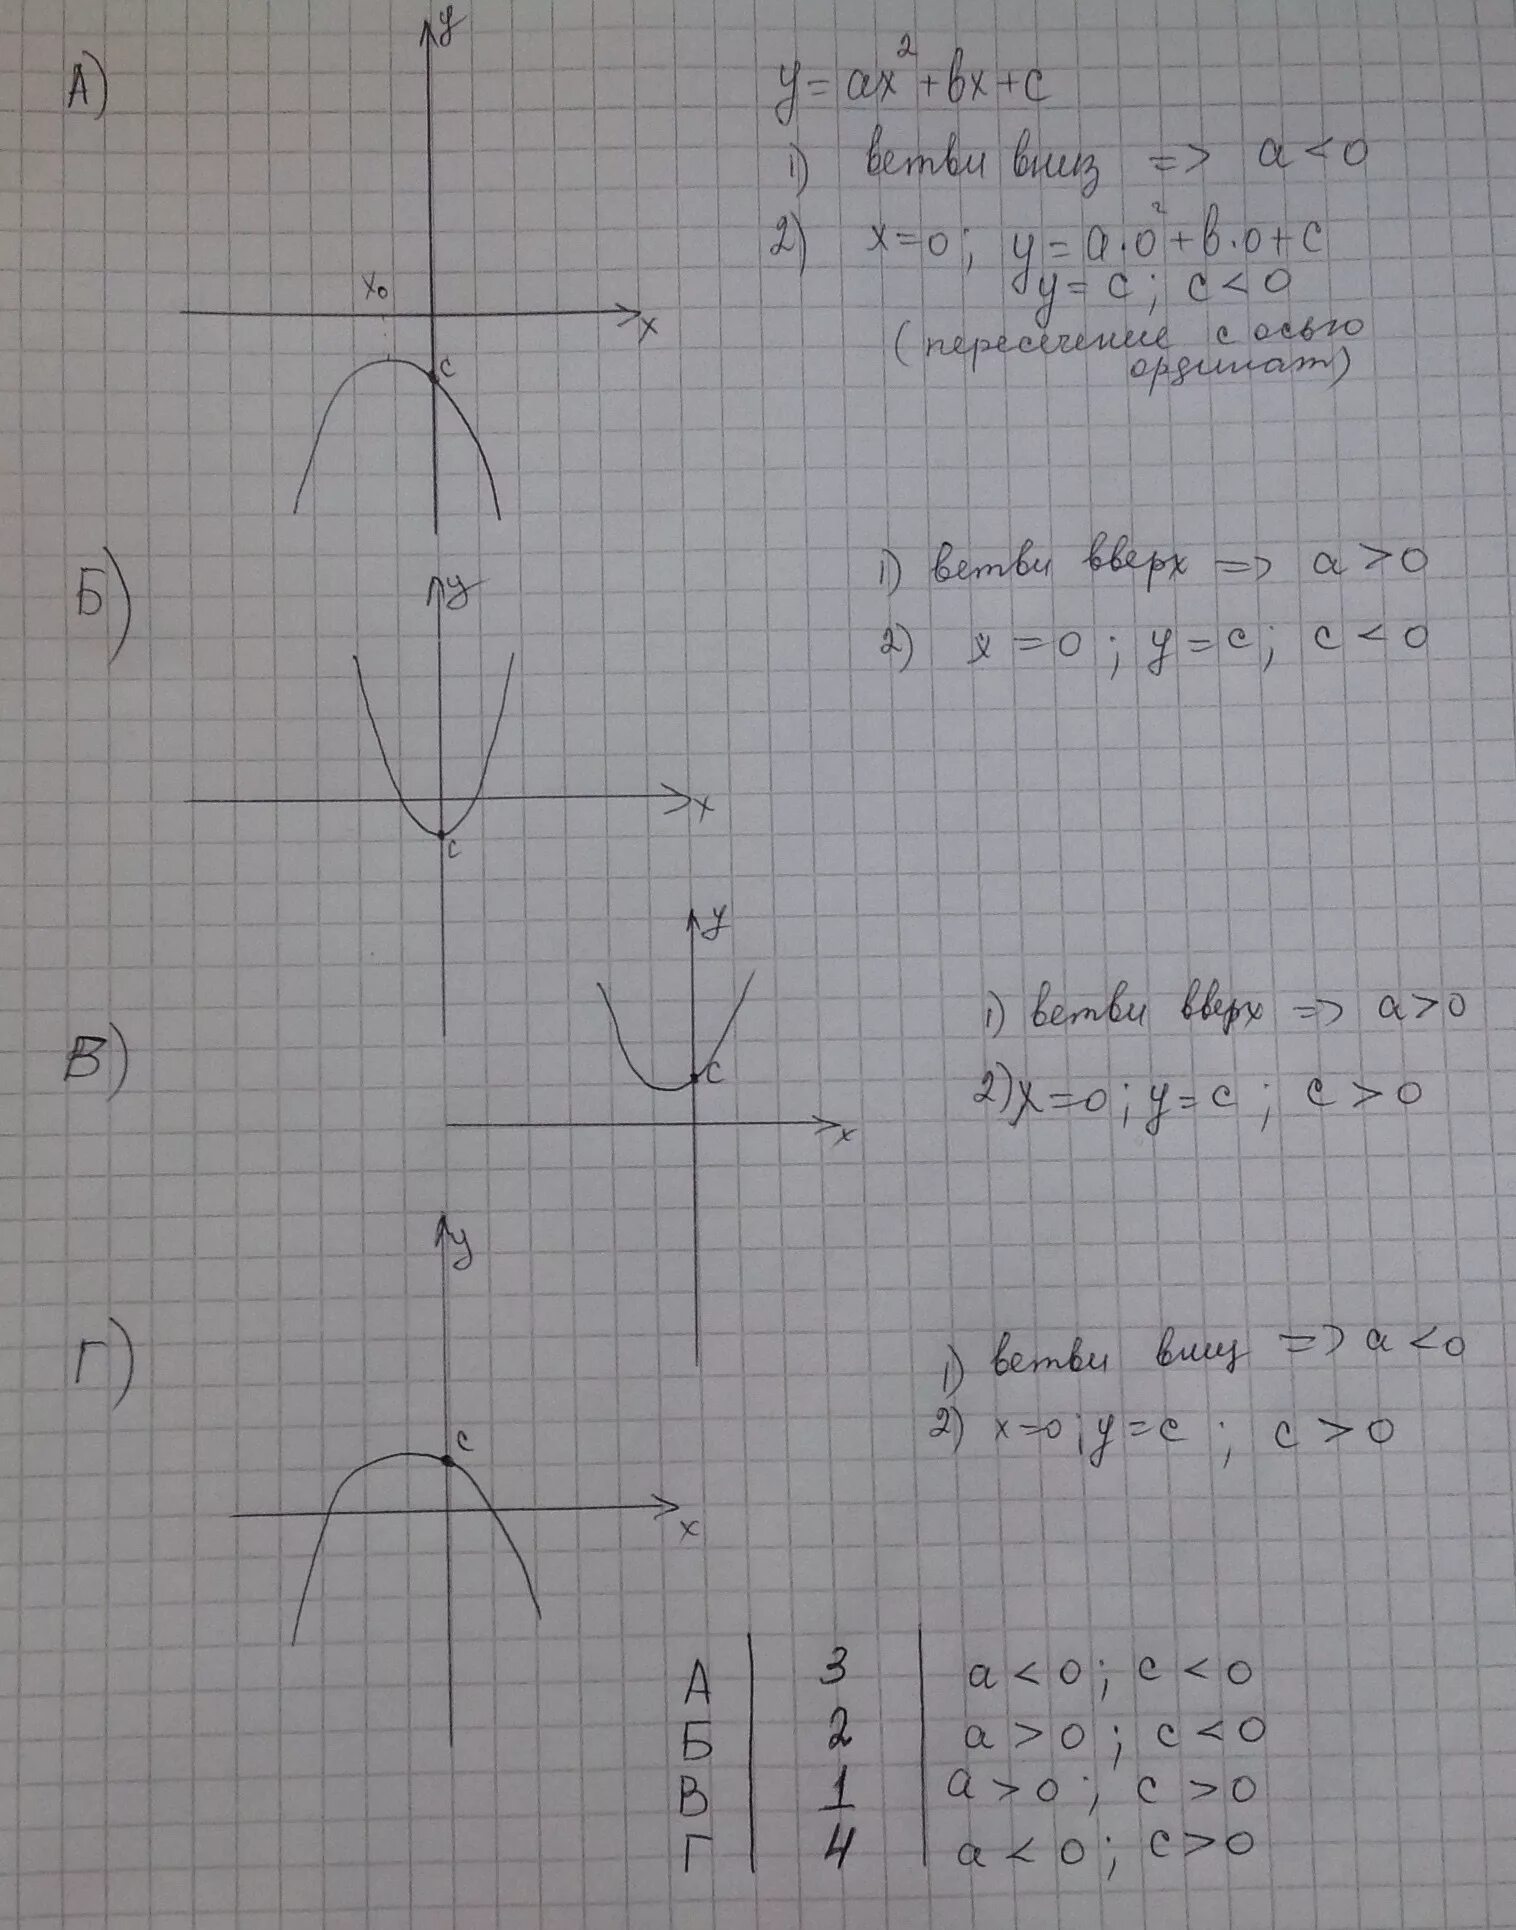 А)
y
x₀
x
c
y = ax² + bx + c
1) ветви вниз => a < 0
2) x = 0; y = a·0² + b·0 + c
y = c; c < 0
(пересечение с осью
ординат)
Б)
y
x
c
1) ветви вверх => a > 0
2) x = 0; y = c; c < 0
В)
y
c
x
1) ветви вверх => a > 0
2) x = 0; y = c; c > 0
Г)
y
c
x
1) ветви вниз => a < 0
2) x = 0; y = c; c > 0
А | 3 | a < 0; c < 0
Б | 2 | a > 0; c < 0
В | 1 | a > 0; c > 0
Г | 4 | a < 0; c > 0